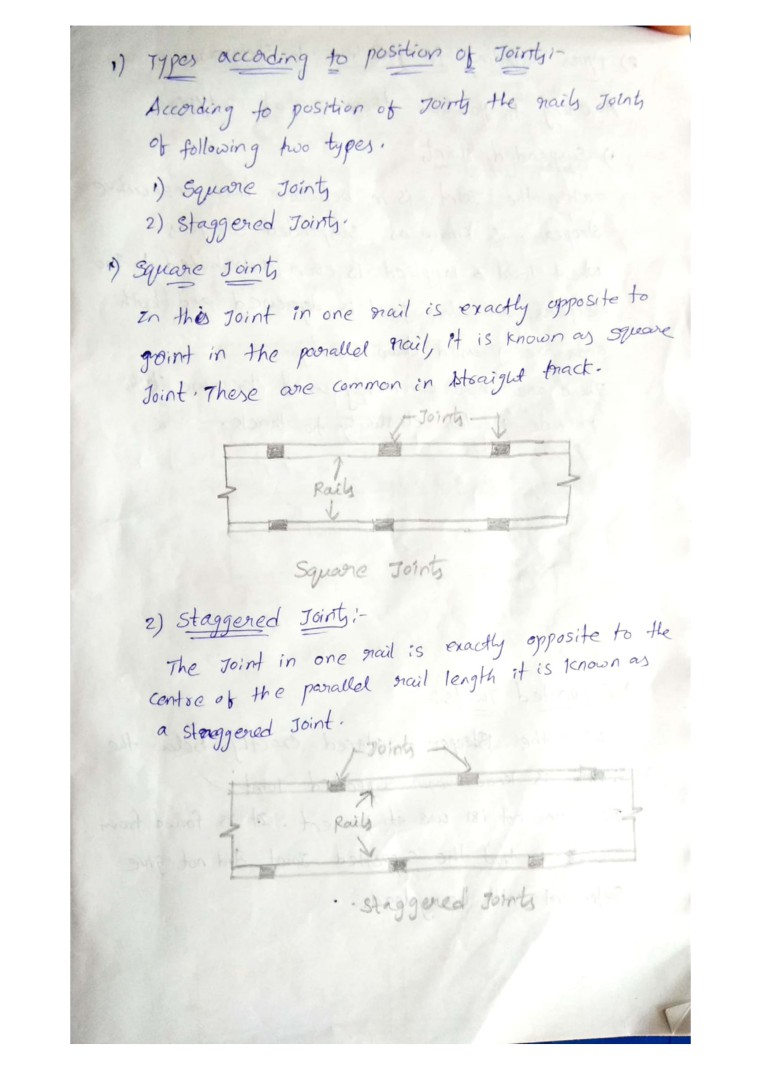 1) Types according to position of Joints:-
According to position of Joints the rails Joints
of following two types.
1) Square Joints
2) Staggered Joints.
1) Square Joints
In this Joint in one rail is exactly opposite to
joint in the parallel rail, it is known as square
Joint. These are common in straight track.
Joints
Rails
Square Joints
2) Staggered Joints:-
The Joint in one rail is exactly opposite to the
centre of the parallel rail length it is known as
a staggered Joint.
Joints
Rails
Staggered Joints